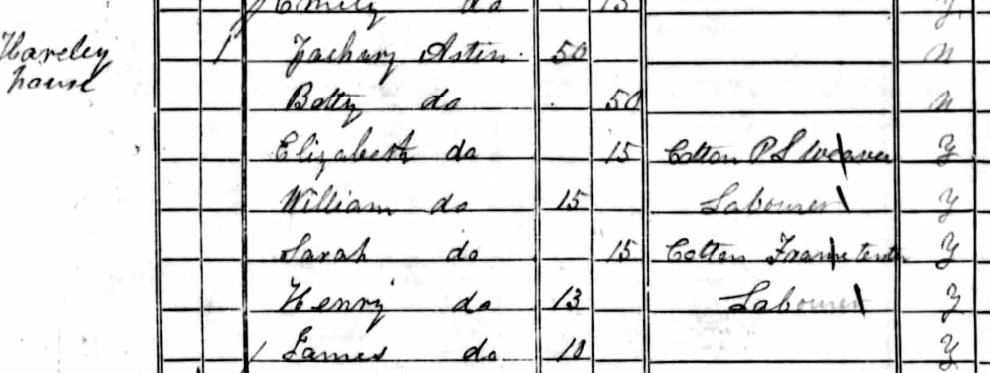 Emily do 15 Y
Hareley 1 Zachary Asten 50 N
house
Betty do 50 N
Elizabeth do 15 Cotton P L Weaver Y
William do 15 Labourer Y
Sarah do 15 Cotton Frame tenter Y
Henry do 13 Labourer Y
James do 10 Y